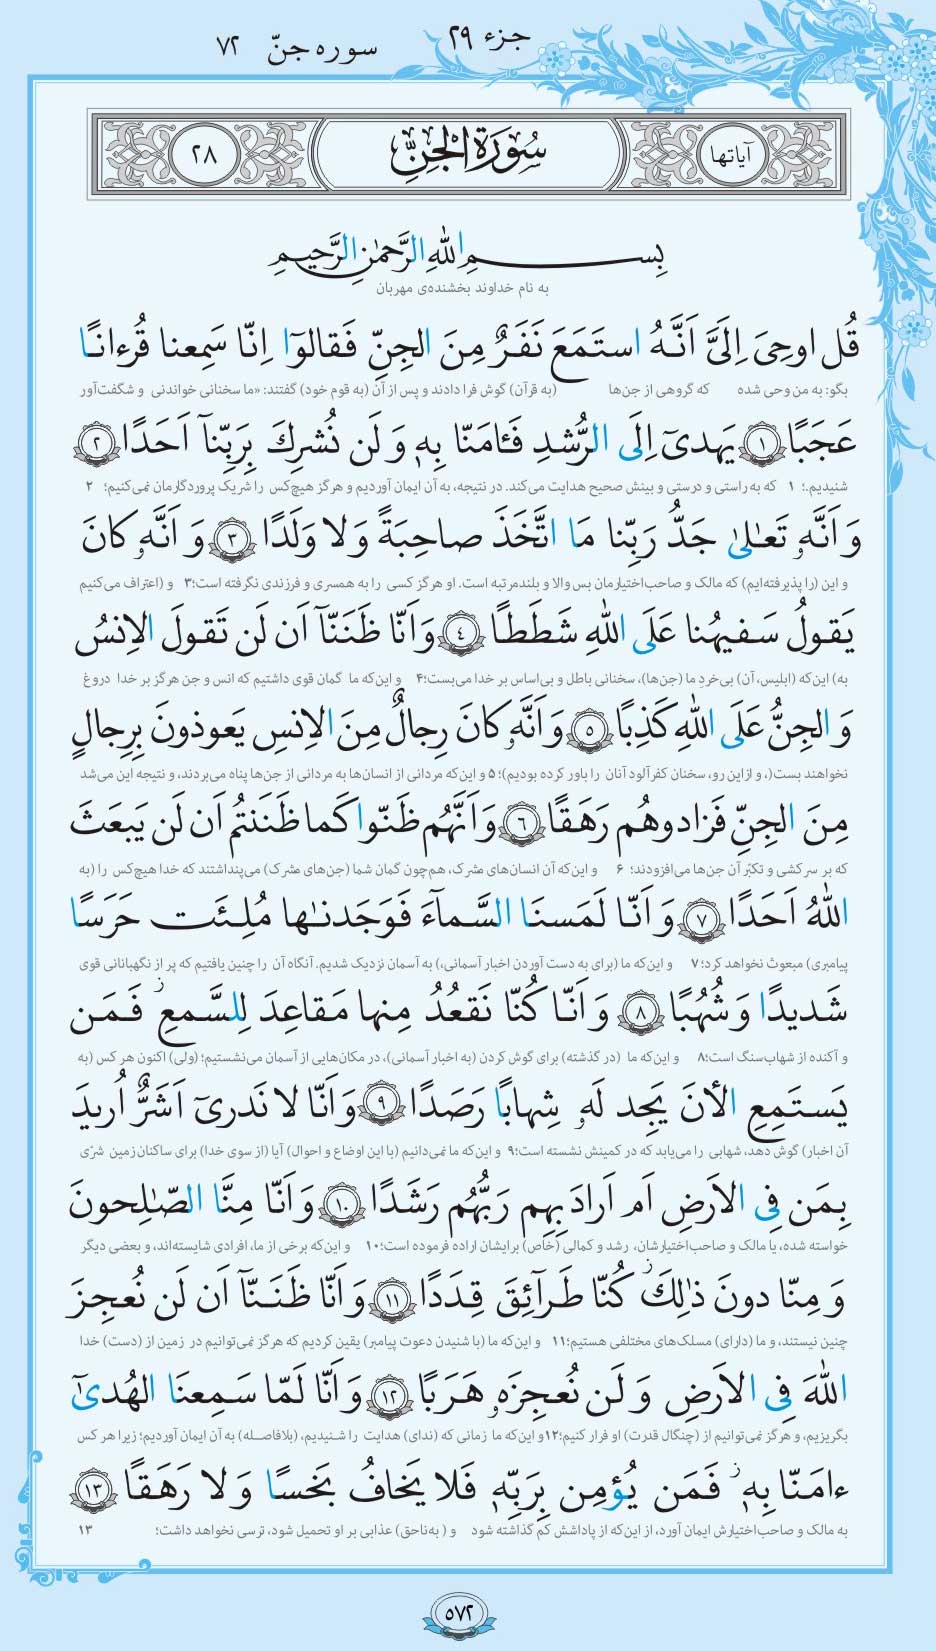 جزء ۲۹
سوره جنّ ۷۲
آیاتها
سُورَةُ الْجِنِّ
۲۸
بِسمِ اللهِ الرَّحمٰنِ الرَّحیمِ
به نام خداوند بخشنده‌ی مهربان
قُل اوحِیَ اِلَیَّ اَنَّهُ استَمَعَ نَفَرٌ مِنَ الجِنِّ فَقالوٓا اِنّا سَمِعنا قُرءانًا
بگو: به من وحی شده که گروهی از جن‌ها (به قرآن) گوش فرا دادند و پس از آن (به قوم خود) گفتند: «ما سخنانی خواندنی و شگفت‌آور
عَجَبًا ۱ یَهدیٓ اِلَی الرُّشدِ فَـٔامَنّا بِهٖ وَ لَن نُشرِكَ بِرَبِّنآ اَحَدًا ۲
شنیدیم.؛ ۱ که به راستی و درستی و بینش صحیح هدایت می‌کند. در نتیجه، به آن ایمان آوردیم و هرگز هیچ‌کس را شریک پروردگارمان نمی‌کنیم؛ ۲
وَ اَنَّهٗ تَعٰلیٰ جَدُّ رَبِّنا مَا اتَّخَذَ صاحِبَةً وَ لا وَلَدًا ۳ وَ اَنَّهٗ کانَ
و این (را پذیرفته‌ایم) که مالک و صاحب‌اختیارمان بس والا و بلندمرتبه است. او هرگز کسی را به همسری و فرزندی نگرفته است؛۳ و (اعتراف می‌کنیم
یَقولُ سَفیهُنا عَلَی اللهِ شَطَطًا ٤ وَ اَنّا ظَنَنّآ اَن لَن تَقولَ الاِنسُ
به) این‌که (ابلیس، آن) بی‌خردِ ما (جن‌ها)، سخنانی باطل و بی‌اساس بر خدا می‌بست؛۴ و این‌که ما گمان قوی داشتیم که انس و جن هرگز بر خدا دروغ
وَ الجِنُّ عَلَی اللهِ کَذِبًا ۵ وَ اَنَّهٗ کانَ رِجالٌ مِنَ الاِنسِ یَعوذونَ بِرِجالٍ
نخواهند بست(، و ازاین رو، سخنان کفرآلود آنان را باور کرده بودیم)؛ ۵ و این‌که مردانی از انسان‌ها به مردانی از جن‌ها پناه می‌بردند، و نتیجه این می‌شد
مِنَ الجِنِّ فَزادوهُم رَهَقًا ۶ وَ اَنَّهُم ظَنّوا کَما ظَنَنتُم اَن لَن یَبعَثَ
که بر سرکشی و تکبّر آن جن‌ها می‌افزودند؛ ۶ و این‌که آن انسان‌های مشرک، هم‌چون گمان شما (جن‌های مشرک) می‌پنداشتند که خدا هیچ‌کس را (به
اللهُ اَحَدًا ۷ وَ اَنّا لَمَسنَا السَّمآءَ فَوَجَدنٰها مُلِئَت حَرَسًا
پیامبری) مبعوث نخواهد کرد؛ ۷ و این‌که ما (برای به دست آوردن اخبار آسمانی،) به آسمان نزدیک شدیم. آنگاه آن را چنین یافتیم که پر از نگهبانانی قوی
شَدیدًا وَ شُهُبًا ۸ وَ اَنّا کُنّا نَقعُدُ مِنها مَقاعِدَ لِلسَّمعِ ز فَمَن
و آکنده از شهاب‌سنگ است؛۸ و این‌که ما (در گذشته) برای گوش کردن (به اخبار آسمانی)، در مکان‌هایی از آسمان می‌نشستیم؛ (ولی) اکنون هر کس (به
یَستَمِعِ الأنَ یَجِد لَهٗ شِهابًا رَصَدًا ۹ وَ اَنّا لا نَدریٓ اَشَرٌّ اُریدَ
آن اخبار) گوش دهد، شهابی را می‌یابد که در کمینش نشسته است؛۹ و این‌که ما نمی‌دانیم (با این اوضاع و احوال) آیا (از سوی خدا) برای ساکنان زمین شرّی
بِمَن فِی الاَرضِ اَم اَرادَ بِهِم رَبُّهُم رَشَدًا ۱۰ وَ اَنّا مِنَّا الصّٰلِحونَ
خواسته شده، یا مالک و صاحب‌اختیارشان، رشد و کمالی (خاص) برایشان اراده فرموده است؛۱۰ و این‌که برخی از ما، افرادی شایسته‌اند، و بعضی دیگر
وَ مِنّا دونَ ذٰلِكَ ز کُنّا طَرآئِقَ قِدَدًا ۱۱ وَ اَنّا ظَنَنّآ اَن لَن نُعجِزَ
چنین نیستند، و ما (دارای) مسلک‌های مختلفی هستیم؛۱۱ و این‌که ما (با شنیدن دعوت پیامبر) یقین کردیم که هرگز نمی‌توانیم در زمین از (دست) خدا
اللهَ فِی الاَرضِ وَ لَن نُعجِزَهٗ هَرَبًا ۱۲ وَ اَنّا لَمّا سَمِعنَا الهُدیٰٓ
بگریزیم، و هرگز نمی‌توانیم از (چنگال قدرت) او فرار کنیم؛۱۲و این‌که ما زمانی که (ندای) هدایت را شنیدیم، (بلافاصله) به آن ایمان آوردیم؛ زیرا هر کس
ءامَنّا بِهٖ ز فَمَن یُؤمِن بِرَبِّهٖ فَلا یَخافُ بَخسًا وَ لا رَهَقًا ۱۳
به مالک و صاحب‌اختیارش ایمان آورد، از این‌که از پاداشش کم گذاشته شود و ( به‌ناحق) عذابی بر او تحمیل شود، ترسی نخواهد داشت؛ ۱۳
۵۷۲